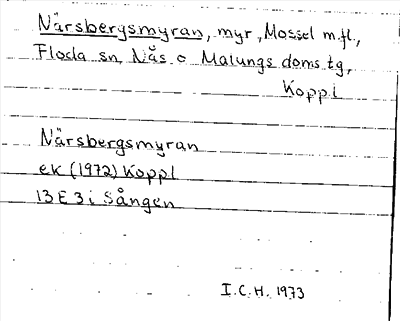 Närsbergsmyran, myr, Mossel m.fl.,
Floda sn, Nås o Malungs doms.tg,
Kopp.l
Närsbergsmyran
ek (1972) Koppl
13 E 3 i Sången
I.C.H. 1973